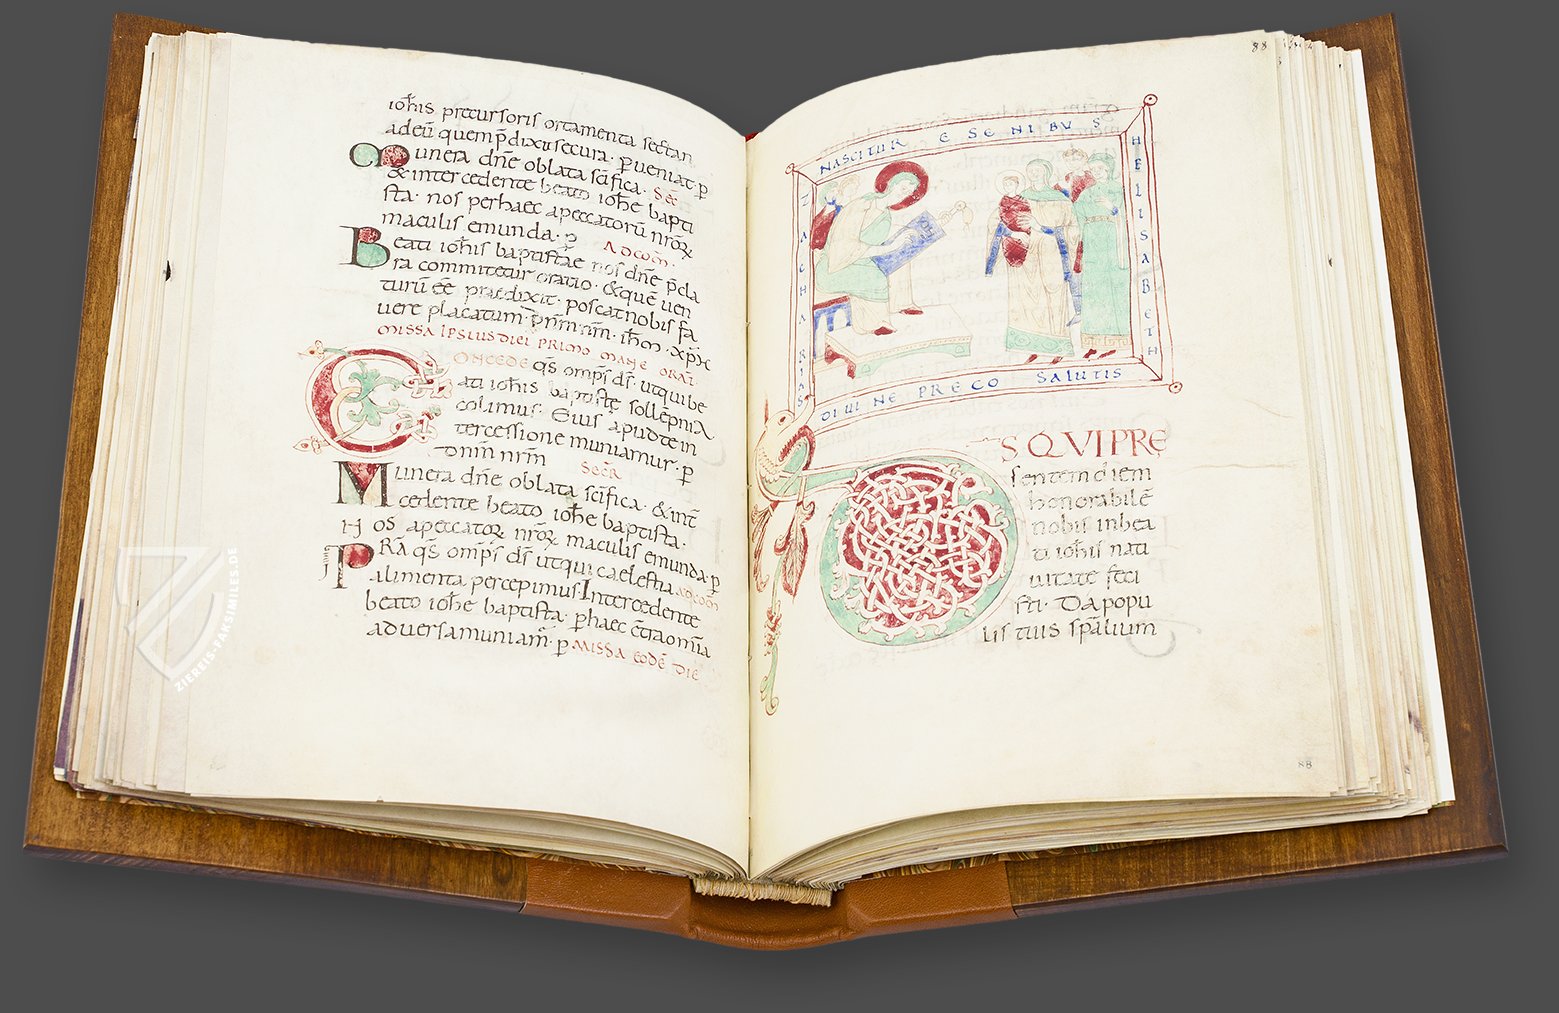 ioħis precursoris ortamenta sectan
adeū quem p̄dixit secura· pueniat· p
Munera dn̄e oblata sc̄ifica· SEC̄
& intercedente beato ioħe bapti
sta· nos perhaec apeccatorū nr̄or
maculis emunda· ADCOM̄·
Beati ioħis baptistae nos dn̄e p̄cla
ra commitetur oratio· & quē ven
turū eē praedixit· poscat nobis fa
vere placatum· dn̄m nr̄m· iħm· xp̄m
MISSA IPSIUS DIEI PRIMO MANE ORAT̄
CONCEDE qs̄ omp̄s ds̄· ut qui be
ati ioħis baptiste sollēpnia
colimus· Eius apud te in
tercessione muniamur· p
dn̄m nr̄m SECR̄
Munera dn̄e oblata sc̄ifica· & int̄
cedente beato ioħe baptista·
Nos apeccator nr̄or maculis emunda· p
PRA qs̄ omp̄s ds̄ ut qui caelestia ADCOM̄
alimenta percepimus Intercedente
beato ioħe baptista· p haec c̄tra om̄ia
adversa muniam̄· p MISSA EODĒ DIE
88
NASCITUR E SENIBUS
ZACHARIAS
HELISABETH
DIUINE PRECO SALUTIS
DS QVI PRE
sentem diem
honorabilē
nobis in bea
ti ioħis nati
uitate feci
sti· Da popu
lis tuis sp̄alium
88
ZIEREIS-FAKSIMILES.DE